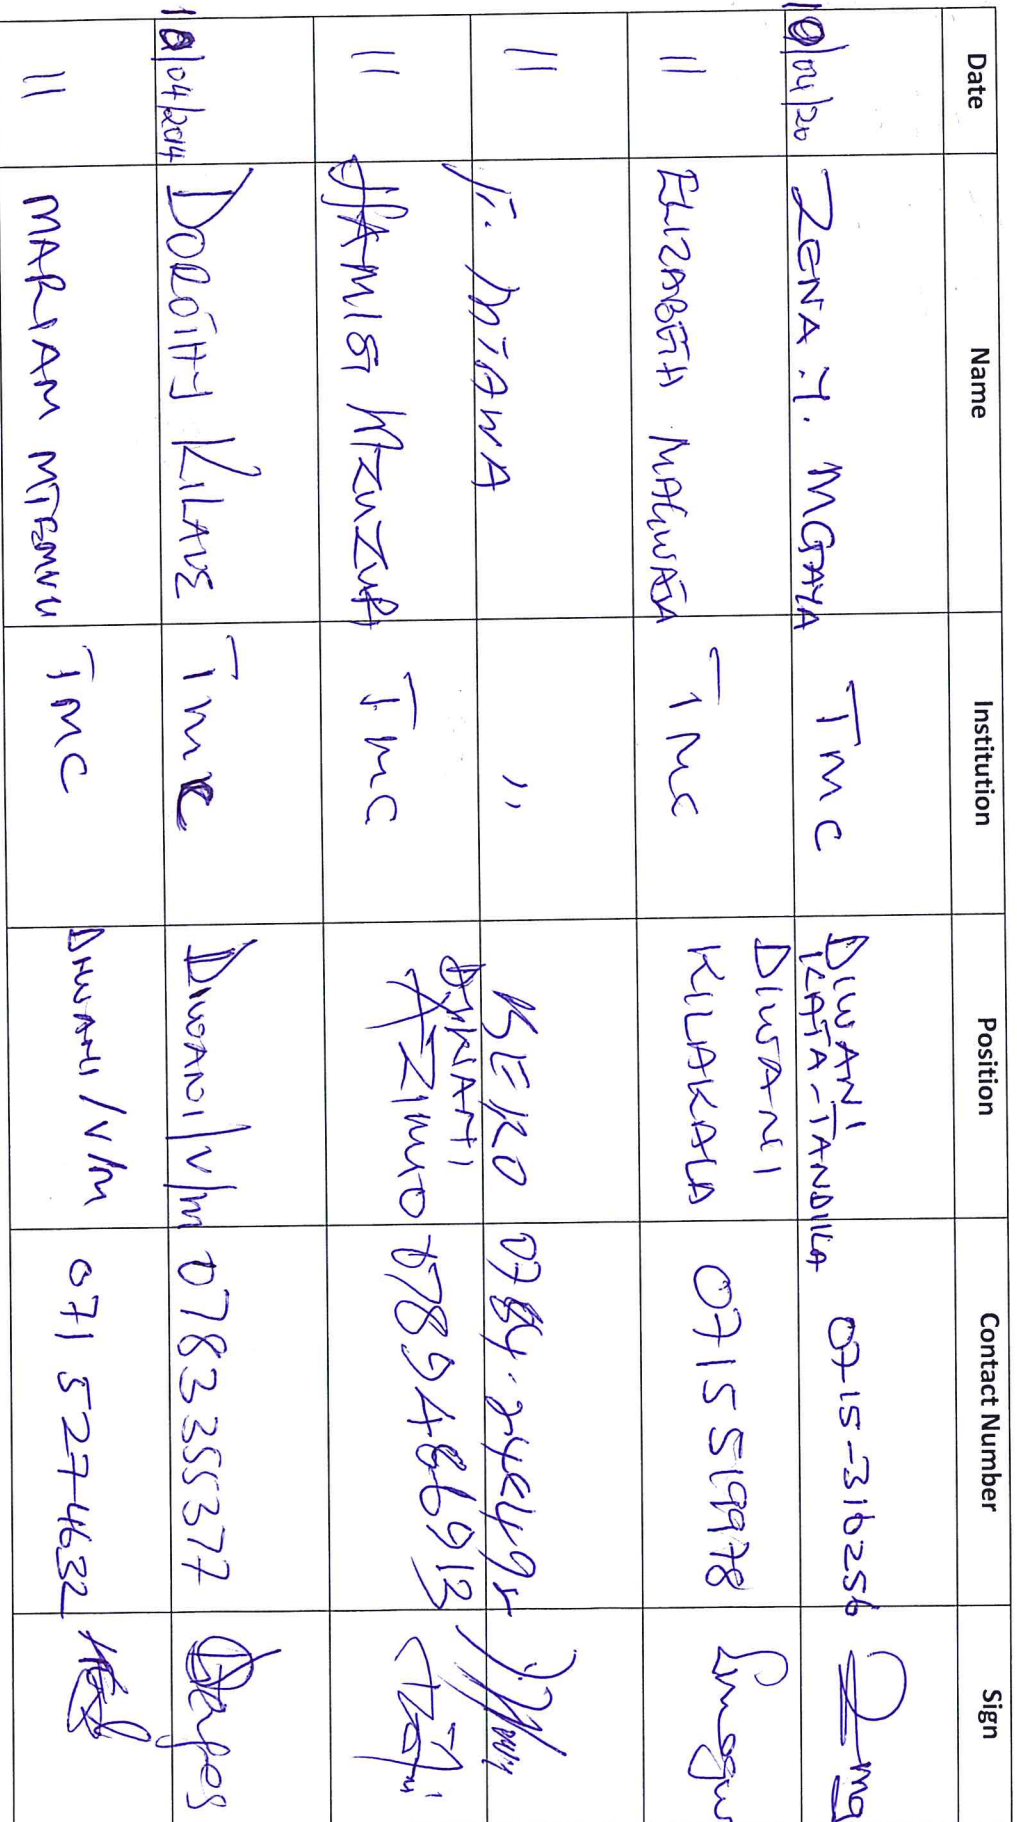 Date Name Institution Position Contact Number Sign
10/04/20 ZENA .Y. MGAYA TMC DIWANI KATA-TANDIKA 0715-316256
11 ELIZABETH MAGWAJA TMC DIWANI KILAKALA 0715519978
11 MTAWA " BEKO
11 HAMISI MZUZURI TMC DIWANI AZIMIO 0789486913
10/04/2014 DOROTHY KILAVE TMC DIWANI/V/M 0783355377
11 MARIAM MTEMVU TMC DIWANI/V/M 0715274632